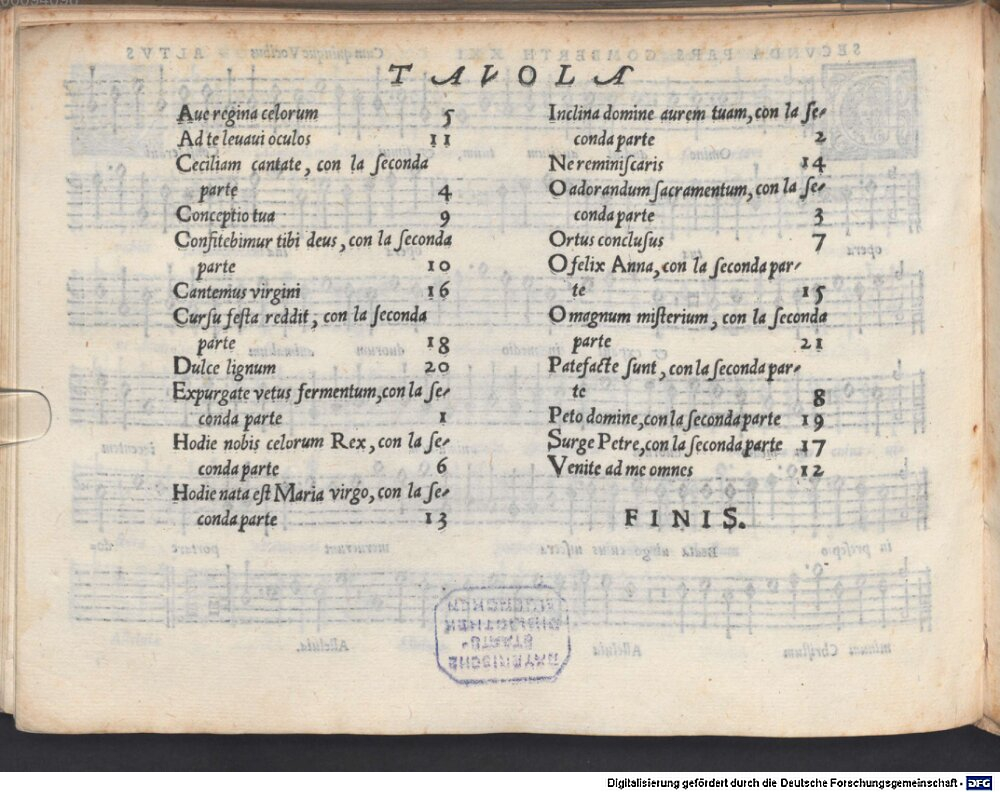 TAVOLA
Aue regina celorum 5
Ad te leuaui oculos 11
Ceciliam cantate, con la seconda
parte 4
Conceptio tua 9
Confitebimur tibi deus, con la seconda
parte 10
Cantemus virgini 16
Cursu festa reddit, con la seconda
parte 18
Dulce lignum 20
Expurgate vetus fermentum, con la se-
conda parte 1
Hodie nobis celorum Rex, con la se-
conda parte 6
Hodie nata est Maria virgo, con la se-
conda parte 13
Inclina domine aurem tuam, con la se-
conda parte 2
Ne reminiscaris 14
O adorandum sacramentum, con la se-
conda parte 3
Ortus conclusus 7
O felix Anna, con la seconda par-
te 15
O magnum misterium, con la seconda
parte 21
Patefacte sunt, con la seconda par-
te 8
Peto domine, con la seconda parte 19
Surge Petre, con la seconda parte 17
Venite ad me omnes 12
FINIS.
BAYERISCHE
STAATS-
BIBLIOTHEK
MUENCHEN
Digitalisierung gefördert durch die Deutsche Forschungsgemeinschaft - DFG